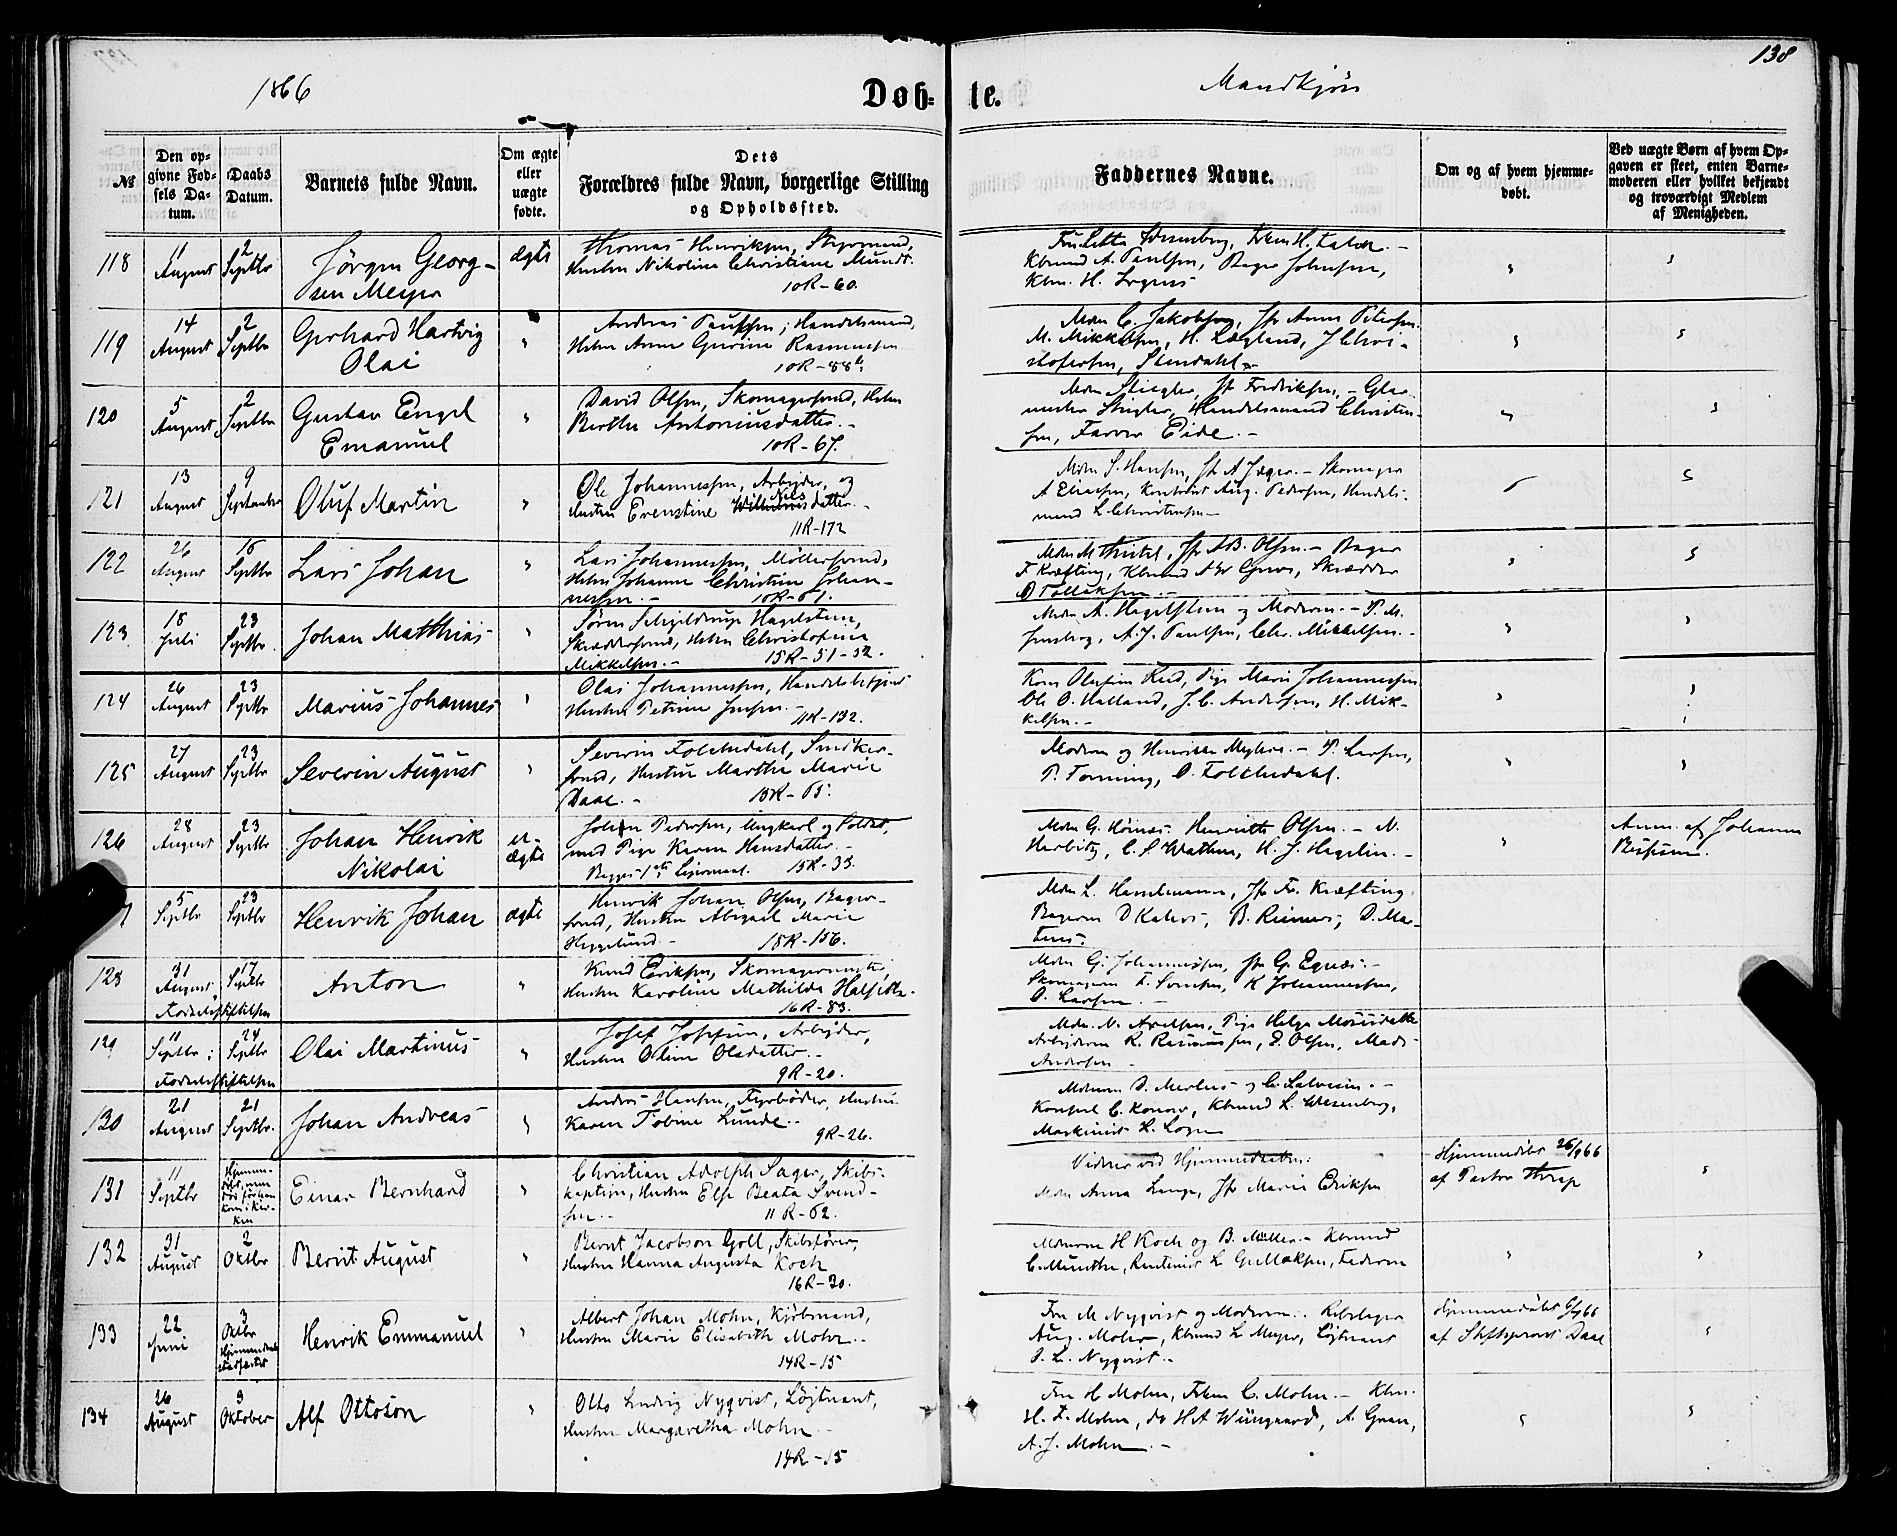 138
1866
Døb-
te.
Mandkjøn
№
Den op-
givne Fød-
sels Da-
tum.
Daabs
Datum.
Barnets fulde Navn.
Om ægte
eller
uægte
fødte.
Dets
Forældres fulde Navn, borgerlige Stilling
og Opholdssted.
Faddernes Navne.
Om og af hvem hjemme-
døbt.
Ved uægte Børn af hvem Op-
gaven er skeet, enten Barne-
moderen eller hvilket bekjendt
og troværdigt Medlem
af Menigheden.
118
11
August
2
Septbr
Jørgen Georg-
sen Meyer
ægte
Thomas Henriksen, Styrmand,
Hustru Nikoline Christiane Mundt.
10R-60.
Kbmand A. Paulsen, Bager Johnsen,
119
14
August
2
Septbr
Gerhard Hartvig
Olai
"
Andreas Paulsen, Handelsmand,
Hstru Anne Gurine Rasmussen
10R-88
Mdm C. Jakobsen, Jfr Anne Petersen
M. Mikkelsen, H. Lægland, J Chri-
stofersen, Stendahl
120
5
August
2
Septbr
Gustav Engel
Emanuel
"
David Olsen, Skomagersvend, Hstru
Berthe Antoniusdatter.-
10R-67.
Mdm Stiegler, Jfr Fredriksen,- Glar-
mester Stiegler, Handelsmand Christen-
sen, Farver Eide.-
121
13
August
9
September
Oluf Martin
"
Ole Johannessen, Arbejder, og
Hustru Erenstine Nilsdatter.-
11R-172
Mdm S. Hansen, Jfr A Jæger.- Skomager
A Eliassen, Kontorist Aug. Pedersen, Handels-
mand L Christensen-
122
26
August
16
Septbr
Lars Johan
"
Lars Johannessen, Møllersvend,
Hstru Johanne Christine Johan-
nessen.-
Olsen.- Bager
F Kræfting, Kbmand Gran, Skrædder
O Tollaksen.-
123
18
Juli
23
Septbr.
Johan Matthias
"
Søren Schjeldrup Hagelsteen,
Skræddersvend, Hstru Christofine
Mikkelsen.-
15R-51-52.
Mdm A. Hagelsteen og Moderen.- P. M.
Jensberg, A.J. Paulsen, Chr. Mikkelsen.-
124
26
August
23
Septbr
Marius Johannes
"
Olai Johannessen, Handelsbetjent
Hustru Petrine Jensen.-
11R-132.
Kone Olufine Reed, Pige Marie Johannessen
Ole O. Halland, J. C. Andersen, H. Mik-
kelsen.-
125
27
August
23
Septbr
Severin August
"
Severin Foldedahl, Snedker-
svend, Hustru Marthe Marie
Daae.-
15R-65.
Moderen og Henrikke Myhre.- P. Larsen,
P. Forming, O. Foldedahl.
126
28
August
23
Septbr
Johan Henrik
Nikolai
u-
ægte
Johan Pedersen, Ungkarl og Soldat,
med Pige Karen Hansdatter.-
Begges 1ste Leiermaal.
15R-33.
Mdm G. Hornes. Henriette Olsen.- N.
Herbitz, C. S Wathne, H. J. Hagelin.-
"
Anm. af Johanne
5
Septbr
23
Septbr
Henrik Johan
ægte
Henrik Johan Olsen, Bager-
svend, Hustru Abigael Marie
Heggelund-
18R-156.
Mdm L. Hanselmann, Jfr Fr. Kræfting.
Bagerne D Kahrs, B. Reimers, D. Ma-
tens.
128
31
August
17
Septbr
Anton
"
Knud Eriksen, Skomagermester,
Hustru Karoline Mathilde
16R-83.
Fødselsstiftelsen
Mdm G. Johannessen, Jfr G. Egnæs.-
Skomagerne T. Svensen, K Johannessen,
O. Larsen.-
129
11
Septbr
24
Septbr
Olai Martinus
"
Josef Josefsen, Arbejder,
Hustru Oline Olsdatter.-
9R-20.
Fødselsstiftelsen
Mdm. N. Axelsen, Pige Helga Monsdatter
Arbejderne R. Rasmussen, E. Olsen, Mads
Andersen-
130
21
August
21
Septbr.
Johan Andreas
"
Anders Hansen, Fyrbøder, Hustru
Karen Tobine Lunde.-
9R-26.
Mdmerne D. Mertens og C. Salvesen.-
Konsul C. Konow, Kbmand L. Wesenberg,
Maskinist
131
11
Septbr
Hjemme-
døbt, men
død før han
kom i Kir-
ken
Einar Bernhard
"
Christian Adolph Sager, Skibs-
kaptein, Hustru Else Beata Svend-
sen.-
11 R-62.
Vidner ved Hjemmedaaben:
Mdm Anna Lange, Jfr Marie Eriksen
Hjemmedøbt 26/9 66
af Pastor Strøp
132
31
August
2
Oktbr
Bernt August
"
Bernt Jacobson Goll, Skibsfører,
Hustru Hanna Augusta Koch
16R-30.
Mdmerne H Koch og B. Müller.- Kbmand
C. Munthe, Rentenist L Gullaksen, Faderen
133
22
Juni
3
Oktbr
Hjemmedaab
stadfæstet
Henrik Emmanuel
"
Albert Johan Mohn, Kjøbmand,
Hustru Marie Elisabeth Mohn.-
14R-15
Fru M Nyqvist og Moderen.- Rebslager
Aug. Mohn, Kbmand L Meyer, Løjtnant
O. L. Nyqvist.-
Hjemmedøbt 6/7 66
af Stiftsprovst Daae
134
26
August
3
Oktober
Alf Ottoson
"
Otto Ludvig Nyqvist, Løjtnant,
Hustru Margaretha Mohn.-
14R-15
Fru H Mohn, Frkn C. Mohn.- Kbm.
H. F. Mohn, do H A Wünsgaard, A. Gran,
A. J. Mohn.-